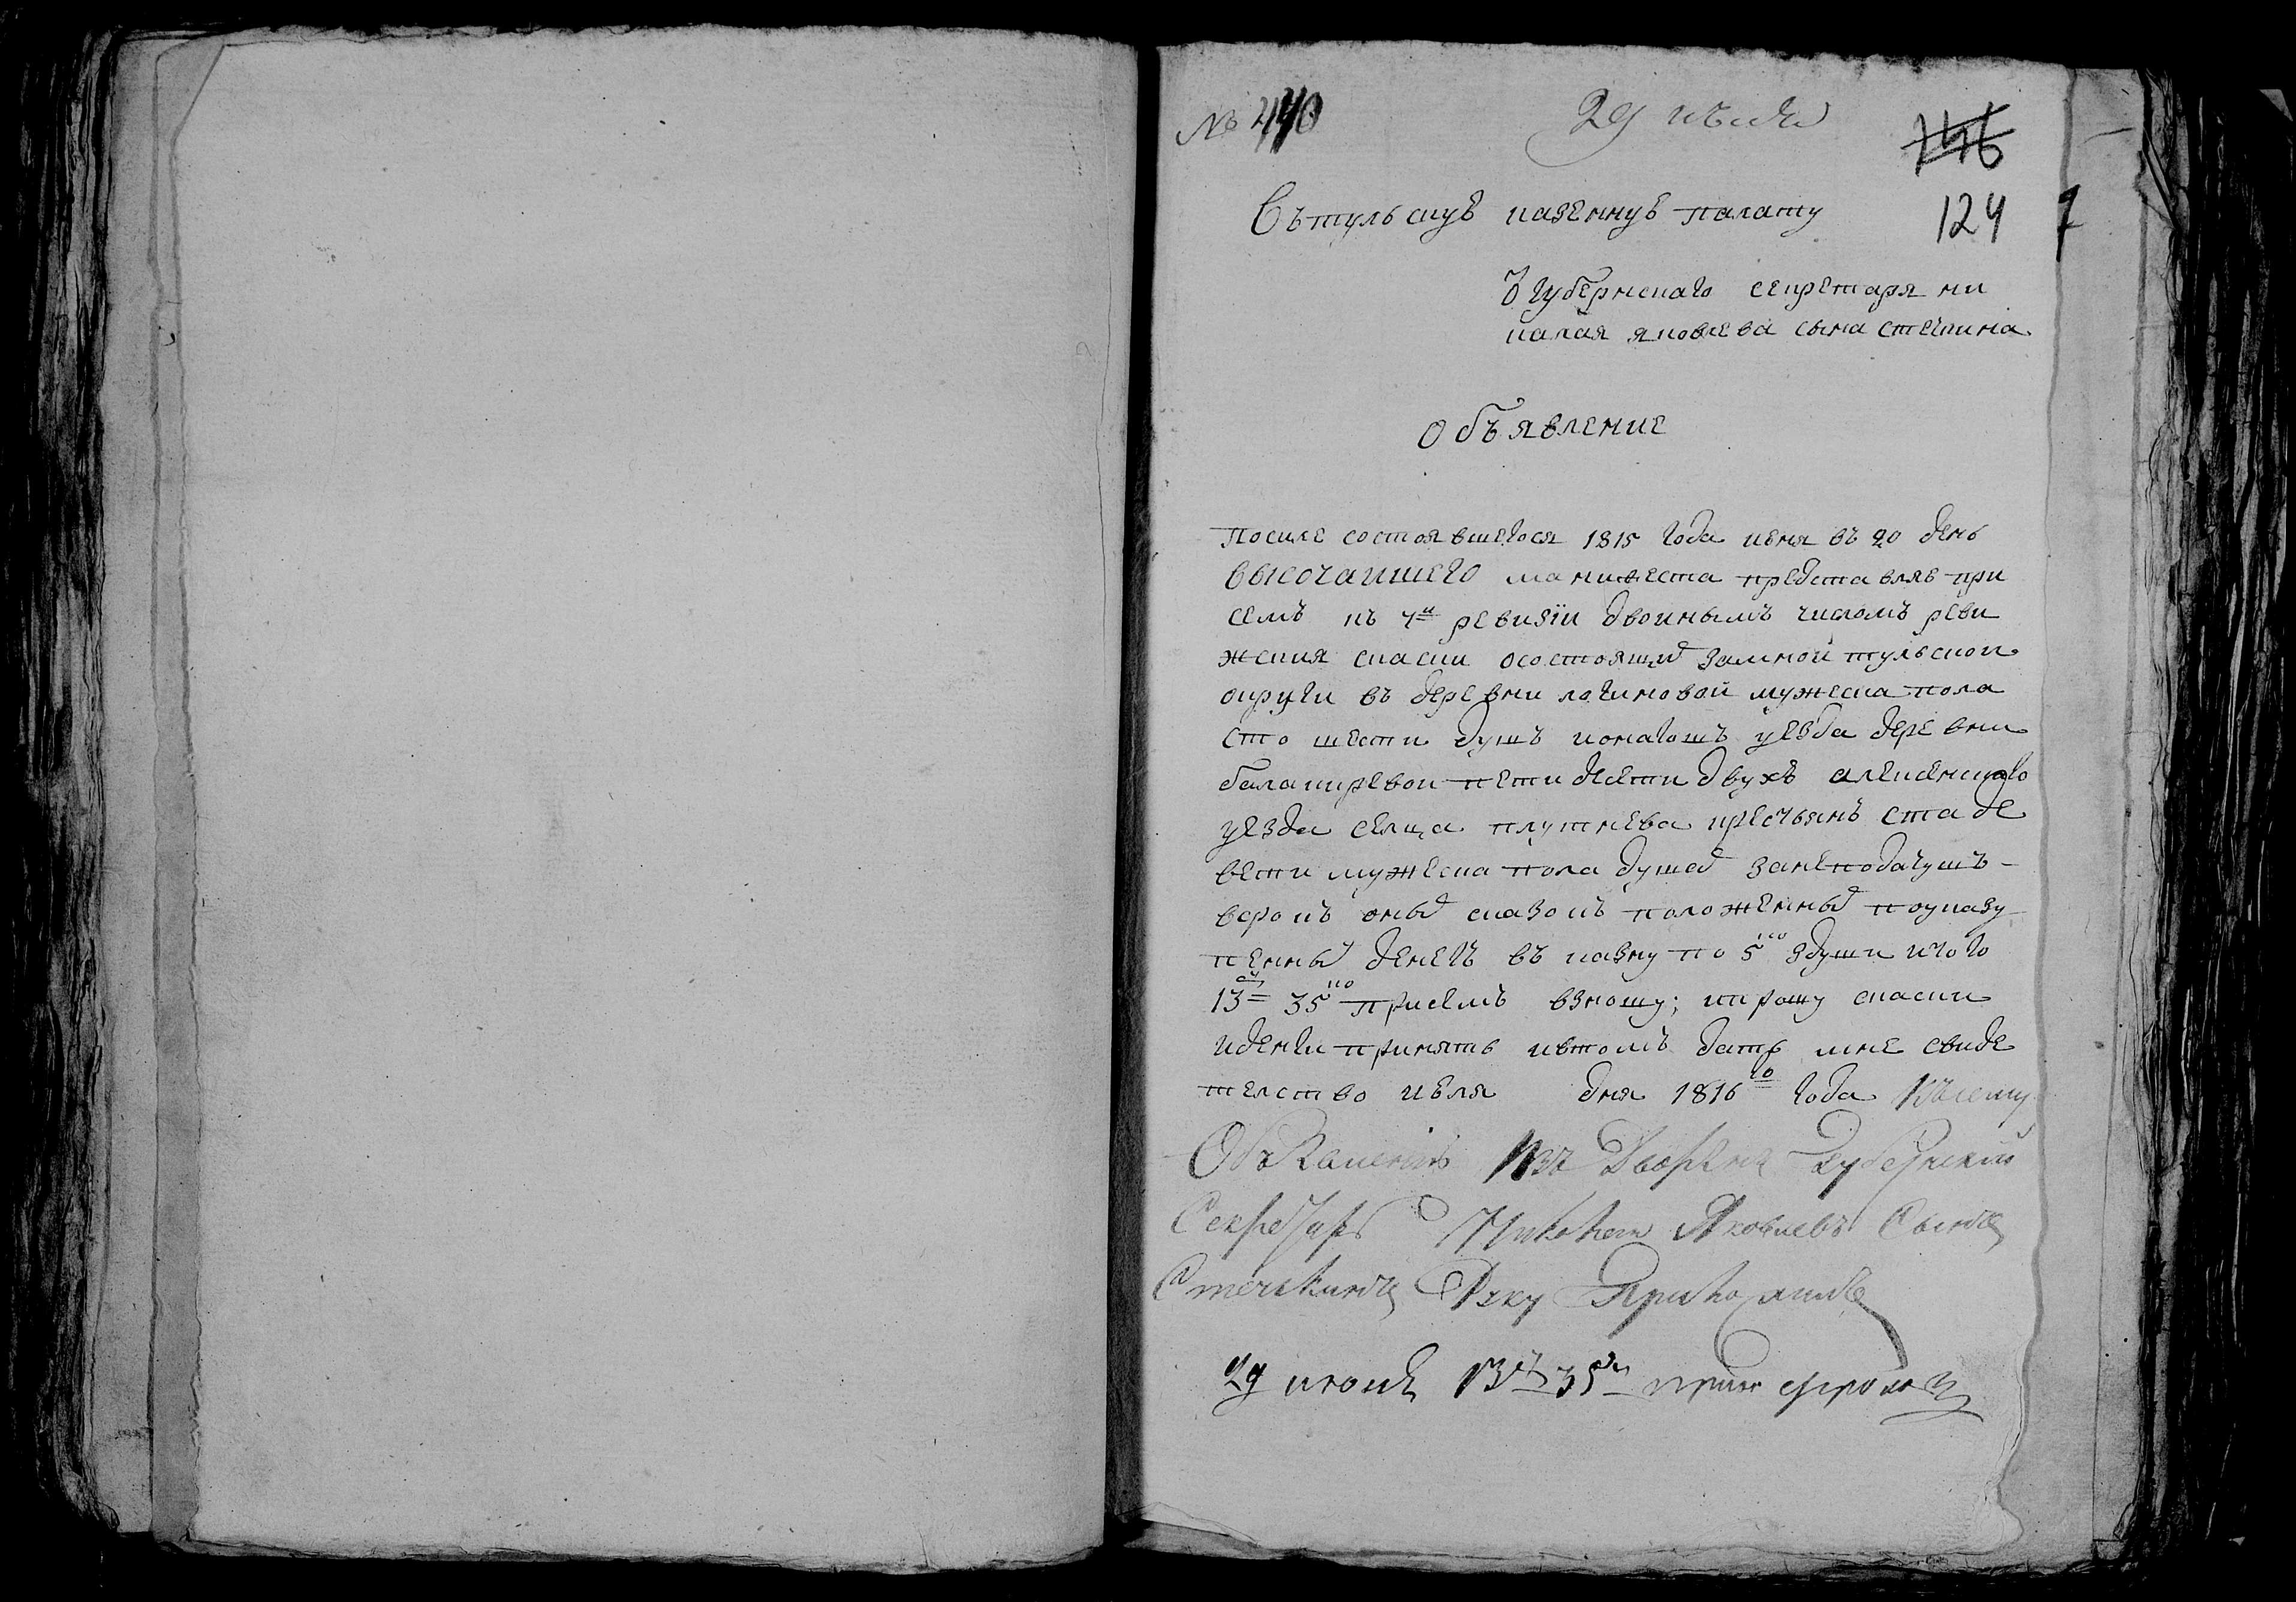 № 440
29 июля
146
124
Въ тульскую казенную палату
От губернскаго секретаря ни
калая яковлева сына стечкина
Объявление
После состоявшегося 1815 года июня въ 20 день
высочаишего манижеста представляю при
семъ къ 7й ревизїи двоинымъ числомъ реви
жския скаски осостоящих замной тульскои
округи въ деревни логиновой мужеска пола
сто шести душъ
уезда деревни
пети десети двухъ алексенскаго
уезда селца плутнева крестьянъ ста де
вети мужеска пола душах
оных сказокъ положенных поуказу
пенных денегъ въ казну по 5ко здуши итого
13ру 35ко присемъ взношу; ипрошу скаски
иденги принять ивтомъ дать мне свиде
телство июля дня 1816го года Ксему
Объявлению Изъ Дворянъ Губернский
Секретарь Николаи Яковлевъ Сынъ
Стечкинъ Руку Приложилъ
29 июля 13ру 35ко принял